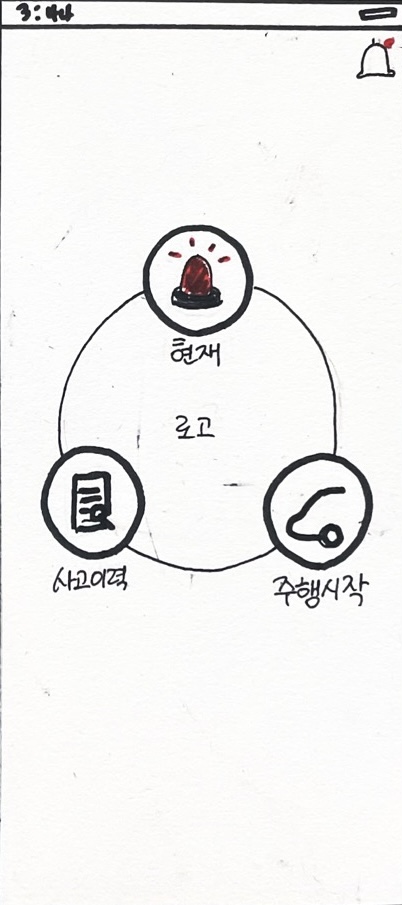 3:44
현재
로고
사고이력
주행시작